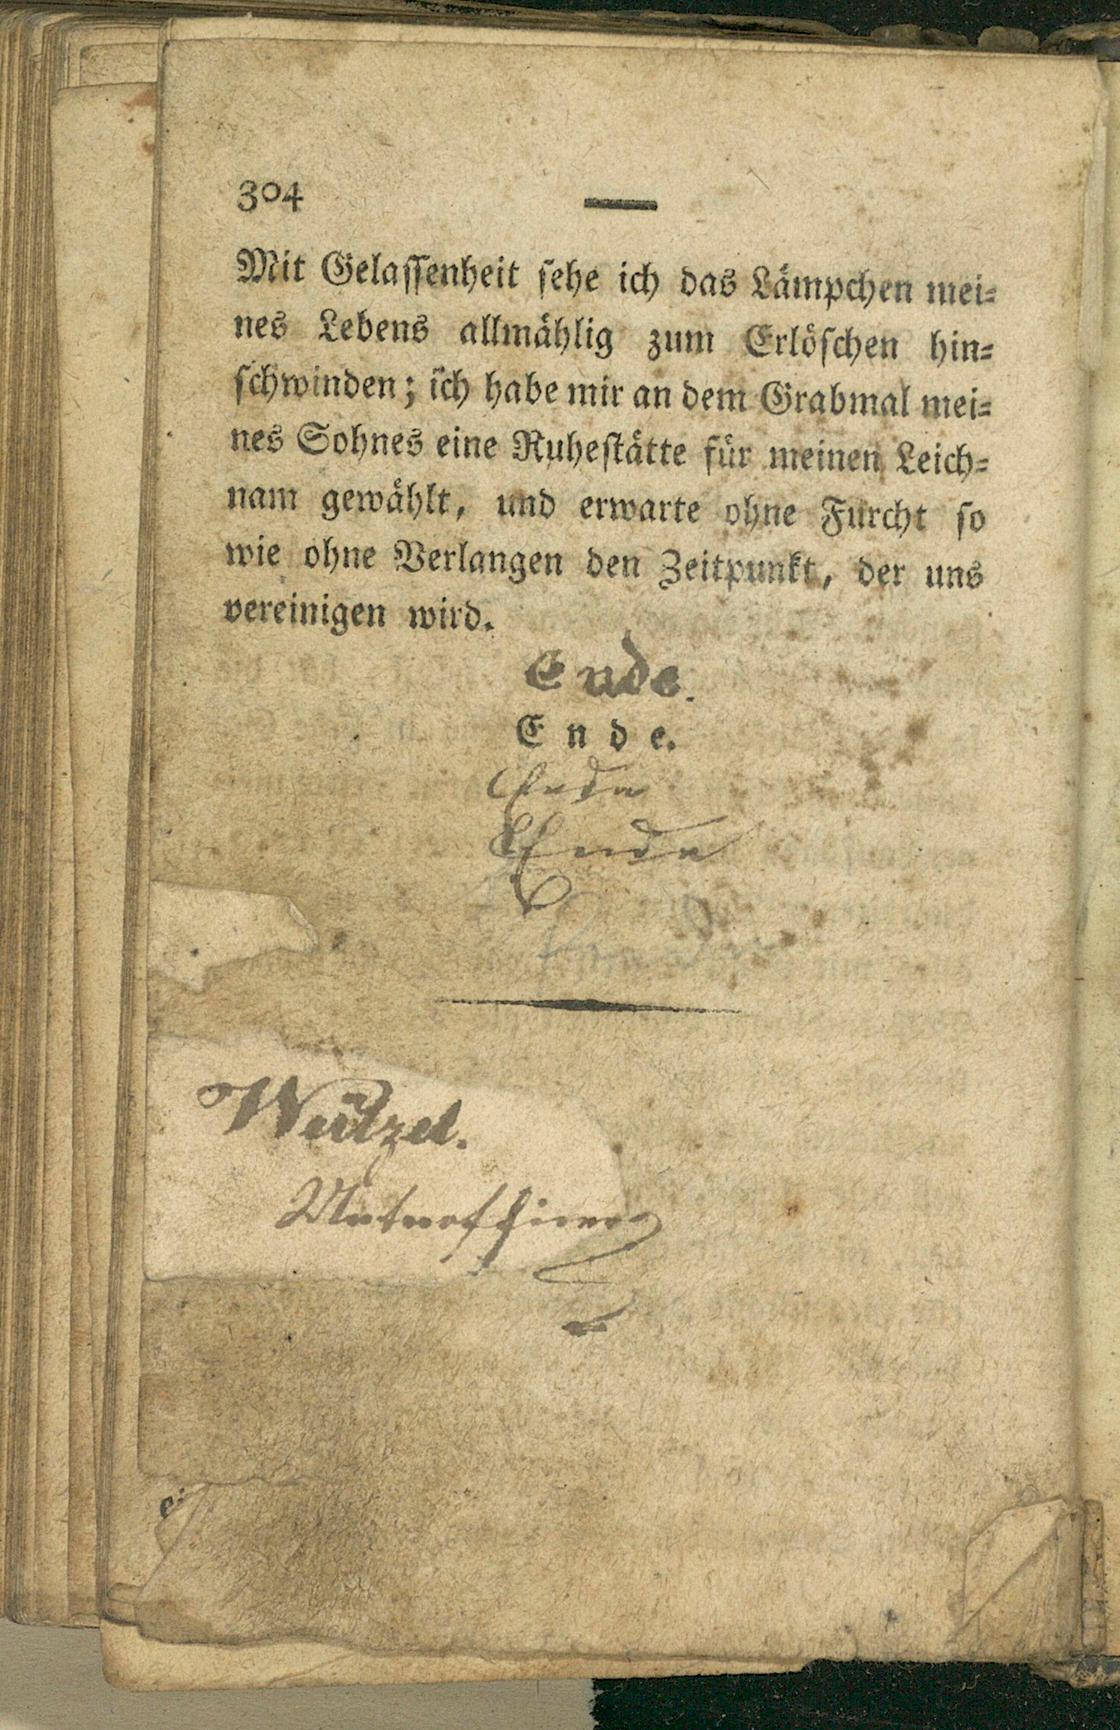 304
Mit Gelassenheit sehe ich das Lämpchen mei⸗
nes Lebens allmählig zum Erlöschen hin⸗
schwinden; ich habe mir an dem Grabmal mei⸗
nes Sohnes eine Ruhestätte für meinen Leich⸗
nam gewählt, und erwarte ohne Furcht so
wie ohne Verlangen den Zeitpunkt, der uns
vereinigen wird.
Ende.
Ende.
Ende
Ende
Unterofficier